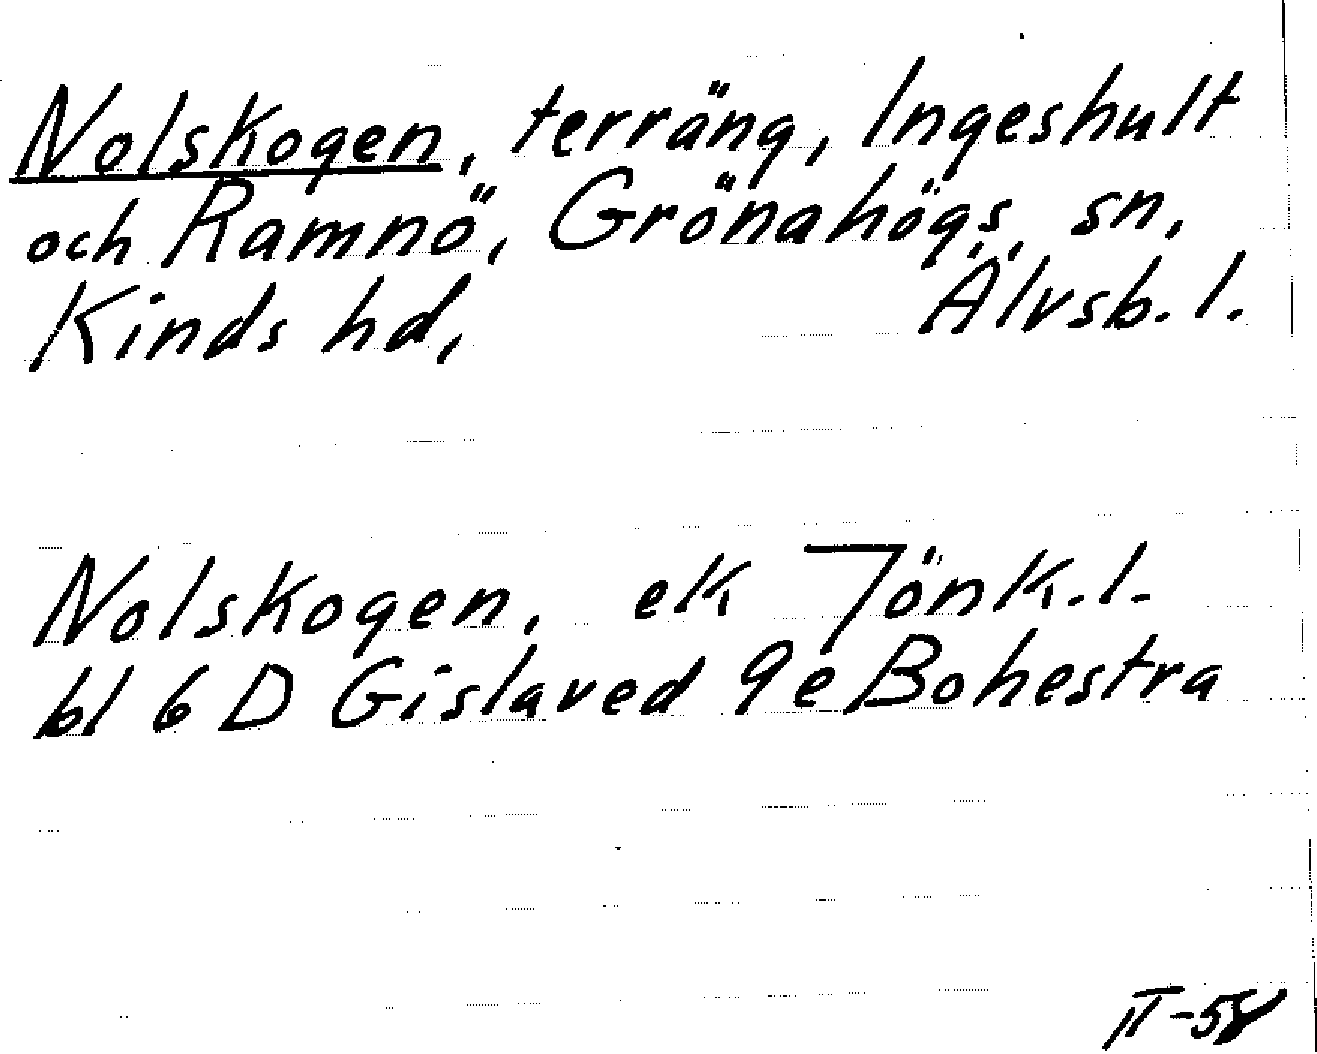 Nolskogen, terräng, Ingeshult
och Ramnö, Grönahögs sn,
Kinds hd, Älvsb. l.
Nolskogen, ek Jönk. l.
bl 6 D Gislaved 9e Bohestra
II-58